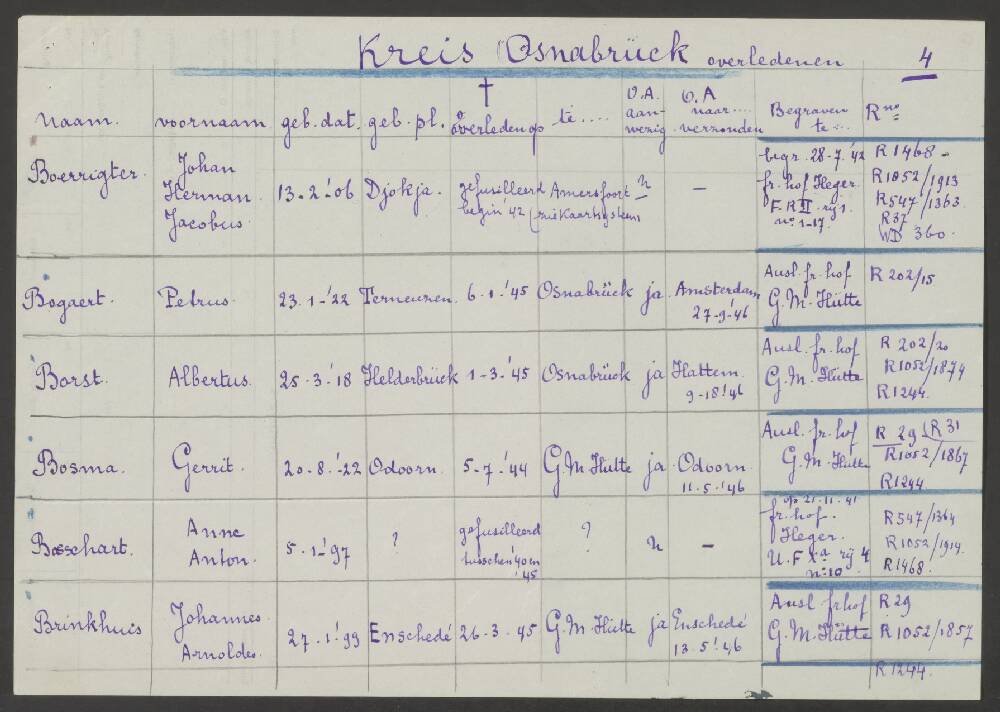 Kreis Osnabrück overledenen 4
Naam. voornaam geb. dat. geb. pl. † overleden op te .... O.A. aanwezig O.A naar.... verzonden Begraven te... R no
Boerrigter. Johan Herman Jacobus. 13.2.'06 Djokja. gefusilleerd begin '42 Amersfoort (zie Kaartsysteem) n — begr. 28-7.'42 fr. hof Heger. F.R II rij 1. no. 1-17. R 1468 - R 1052/1913 R 547/1363 R 37 WD 360.
Bogaert. Petrus. 23.1-'22 Terneuzen. 6.1.'45 Osnabrück ja. Amsterdam 27-9-'46 Ausl. fr. hof G.M. Hütte R 202/15
Borst. Albertus. 25-3.'18 Helderbrück 1-3.'45 Osnabrück ja Hattem. 9-18!46 Ausl. fr. hof G.M. Hütte R 202/20 R 1052/1874 R 1244.
Bosma. Gerrit. 20.8.'22 Odoorn. 5-7.'44 G.M Hütte ja. Odoorn. 11.5.'46 Ausl. fr. hof G.M. Hütte R 29 R 31 R1052/1867 R1244
Bosschart. Anne Anton. 5.1-'97 ? gefusilleerd tusschen '40 en '45 ? n — op 21.11.41 fr. hof. Heger. U.F Xa rij 4 no: 10 R 547/1364 R 1052/1914. R 1468.
Brinkhuis Johannes. Arnoldes. 27.1.'99 Enschedé 26-3.'45 G.M Hütte ja Enschedé 13.5!46 Ausl fr hof G.M. Hütte R 29 R 1052/1857 R 1244.